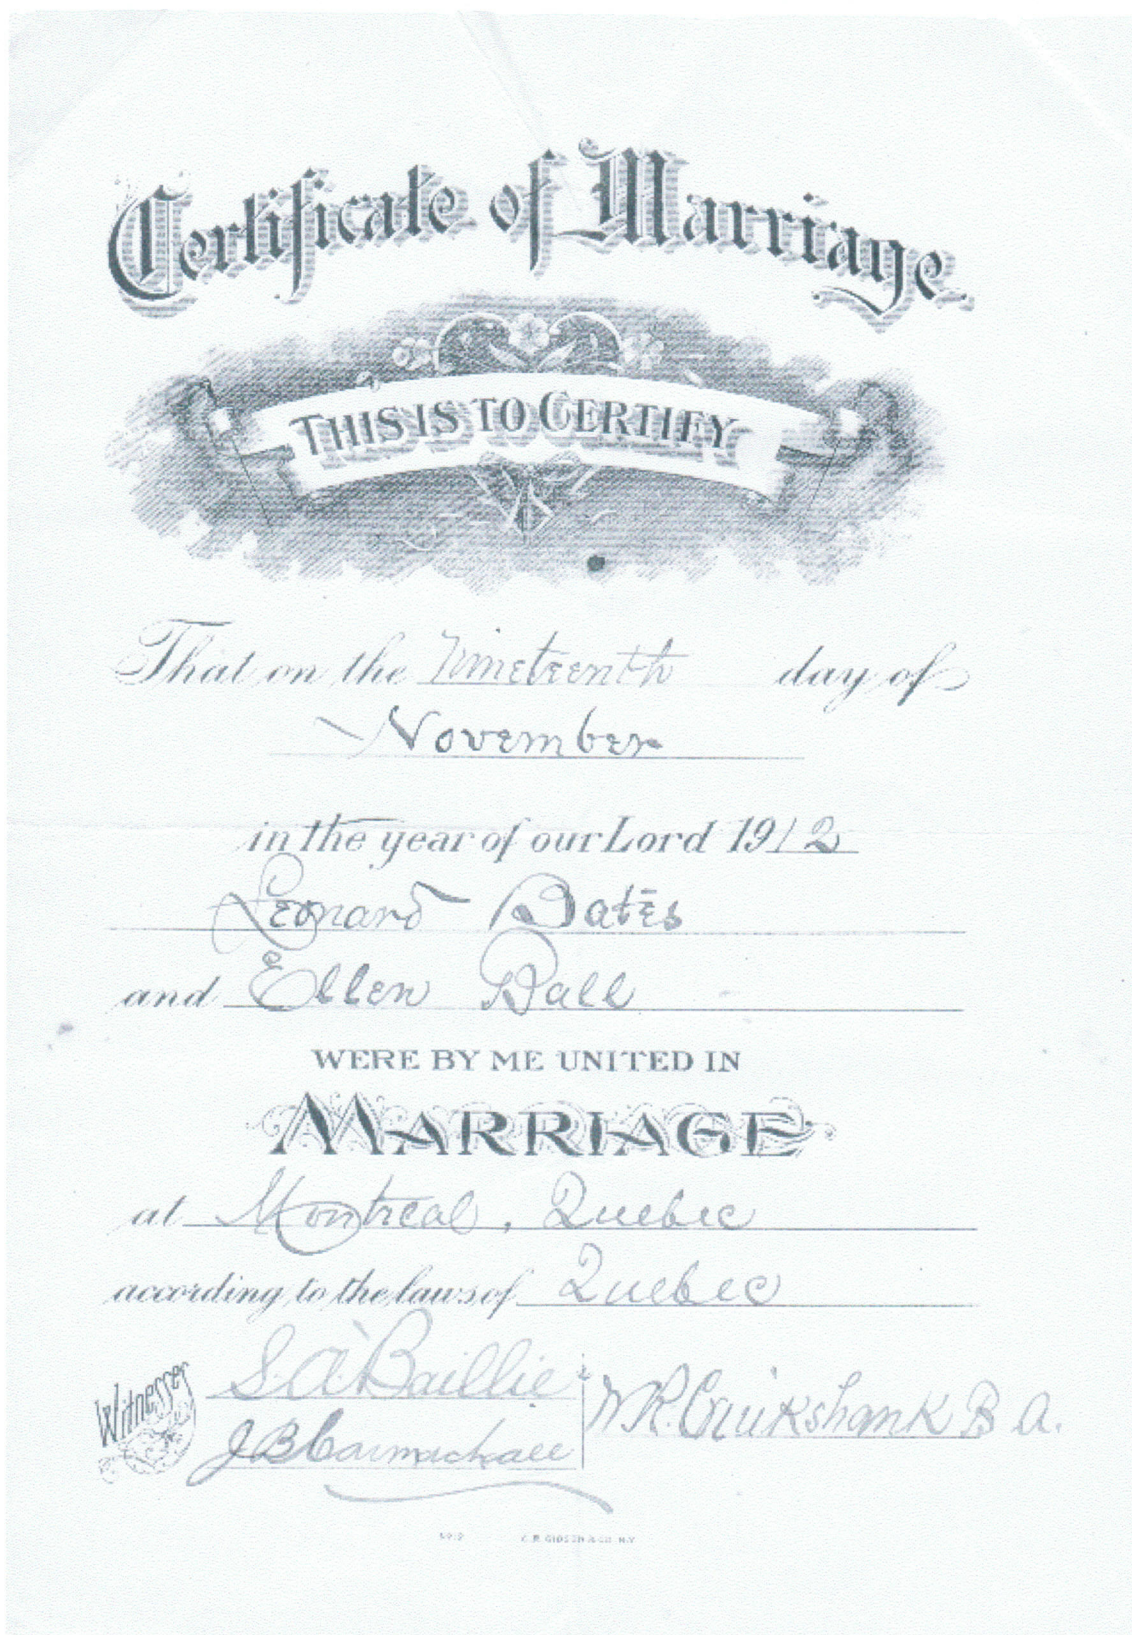 Certificate of Marriage
THIS IS TO CERTIFY
That on the Nineteenth day of
November
in the year of our Lord 1912
Leonard Bates
and Ellen Ball
WERE BY ME UNITED IN
MARRIAGE
at Montreal, Quebec
according to the laws of Quebec
Witnesses
S. A. Baillie
J B Carmachael
W R. Cruikshank B A.